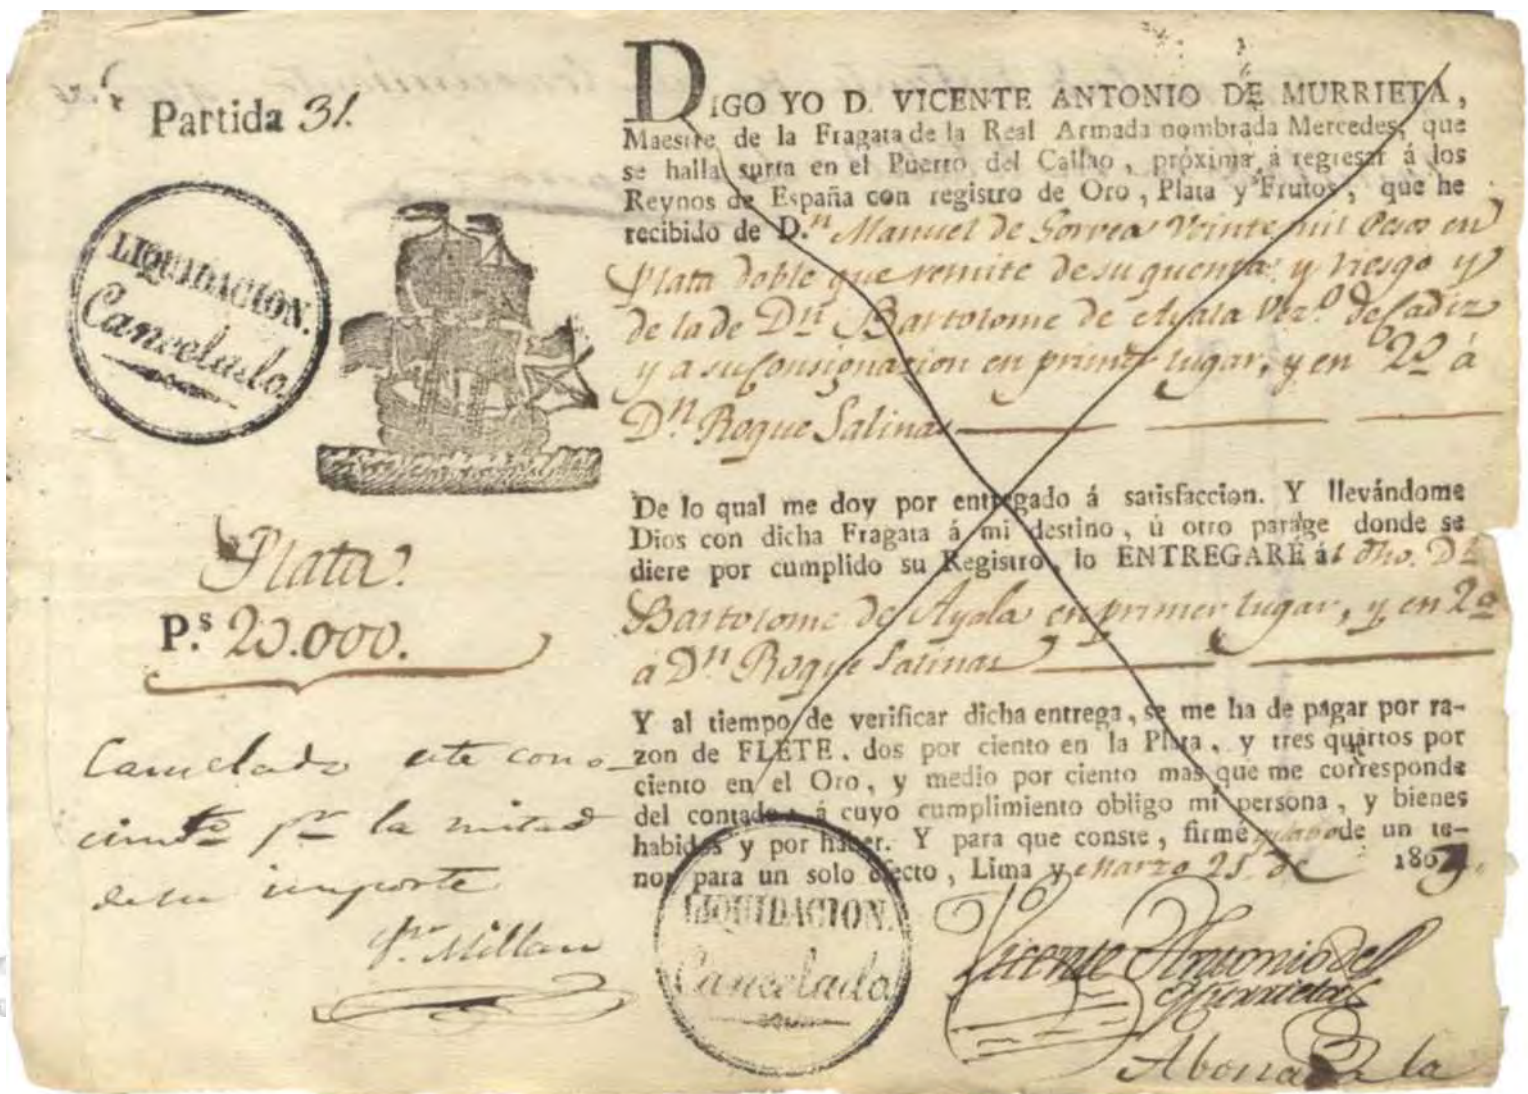 Partida 31.
LIQUIDACION.
Cancelado.
DIGO YO D. VICENTE ANTONIO DE MURRIETA,
Maestre de la Fragata de la Real Armada nombrada Mercedes, que
se halla surta en el Puerto del Callao, próxima á regresar á los
Reynos de España con registro de Oro, Plata y Frutos, que he
recibido de D.n Manuel de Gorvea Veinte mil Pesos en
Plata doble que remite de su quenta y riesgo y
de la de Dn Bartolome de Ayala Vez.o de Cadiz
y a su Consignacion en primer lugar, y en 2o á
Dn Roque Salinas
De lo qual me doy por entregado á satisfaccion. Y llevándome
Dios con dicha Fragata á mi destino, ú otro parage donde se
diere por cumplido su Registro, lo ENTREGARÉ ál dho. Dn
Bartolome de Ayala en primer lugar, y en 2o
á Dn Roque Salinas
Plata.
P.s 20.000.
Y al tiempo de verificar dicha entrega, se me ha de pagar por ra-
zon de FLETE, dos por ciento en la Plata, y tres quartos por
ciento en el Oro, y medio por ciento mas que me corresponde
del contado, á cuyo cumplimiento obligo mi persona, y bienes
habidos y por haber. Y para que conste, firmé de un te-
nor para un solo efecto, Lima y Marzo 25 de 180
Cancelado este cono-
cimto pr la mitad
de su importe
Millan
LIQUIDACION.
Cancelado
Vicente Antonio de
Murrieta
Abonada la